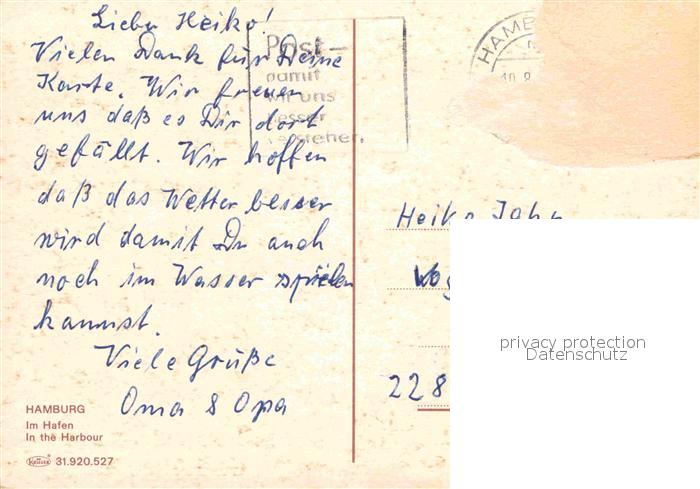 Lieber Heiko!
Vielen Dank für Deine
Karte. Wir freuen
uns daß es Dir dort
gefällt. Wir hoffen
daß das Wetter besser
wird damit Du auch
noch im Wasser spielen
kannst.
Viele Grüße
Oma & Opa
HAMBURG
Im Hafen
In the Harbour
31.920.527
Post-
damit
wir uns
besser
verstehen.
HAMB
Heiko Jahn
228
privacy protection
Datenschutz